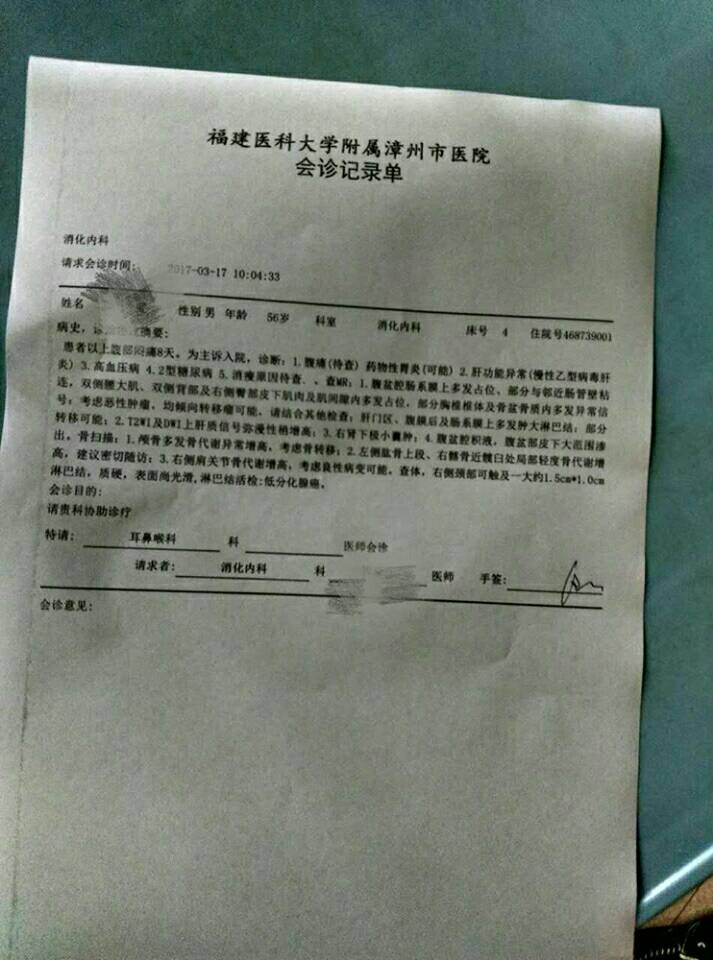 福建医科大学附属漳州市医院
会诊记录单
消化内科
请求会诊时间: 2017-03-17 10:04:33
姓名 性别 男 年龄 56岁 科室 消化内科 床号 4 住院号468739001
病史, 摘要:
患者以上腹部闷痛8天。为主诉入院, 诊断: 1.腹痛(待查) 药物性胃炎(可能) 2.肝功能异常(慢性乙型病毒肝
炎) 3.高血压病 4.2型糖尿病 5.消瘦原因待查、。查MR: 1.腹盆腔肠系膜上多发占位, 部分与邻近肠管壁粘
连, 双侧腰大肌、双侧背部及右侧臀部皮下肌肉及肌间隙内多发占位, 部分胸椎椎体及骨盆骨质内多发异常信
号: 考虑恶性肿瘤, 均倾向转移瘤可能, 请结合其他检查; 肝门区、腹膜后及肠系膜上多发肿大淋巴结: 部分
转移可能; 2.T2WI及DWI上肝质信号弥漫性稍增高; 3.右肾下极小囊肿; 4.腹盆腔积液, 腹盆部皮下大范围渗
出。骨扫描: 1.颅骨多发骨代谢异常增高, 考虑骨转移; 2.左侧肱骨上段、右髂骨近髋臼处局部轻度骨代谢增
高, 建议密切随访; 3.右侧肩关节骨代谢增高, 考虑良性病变可能。查体, 右侧颈部可触及一大约1.5cm*1.0cm
淋巴结, 质硬, 表面尚光滑,淋巴结活检:低分化腺癌。
会诊目的:
请贵科协助诊疗
特请: 耳鼻喉科 科 医师会诊
请求者: 消化内科 科 医师 手签:
会诊意见: